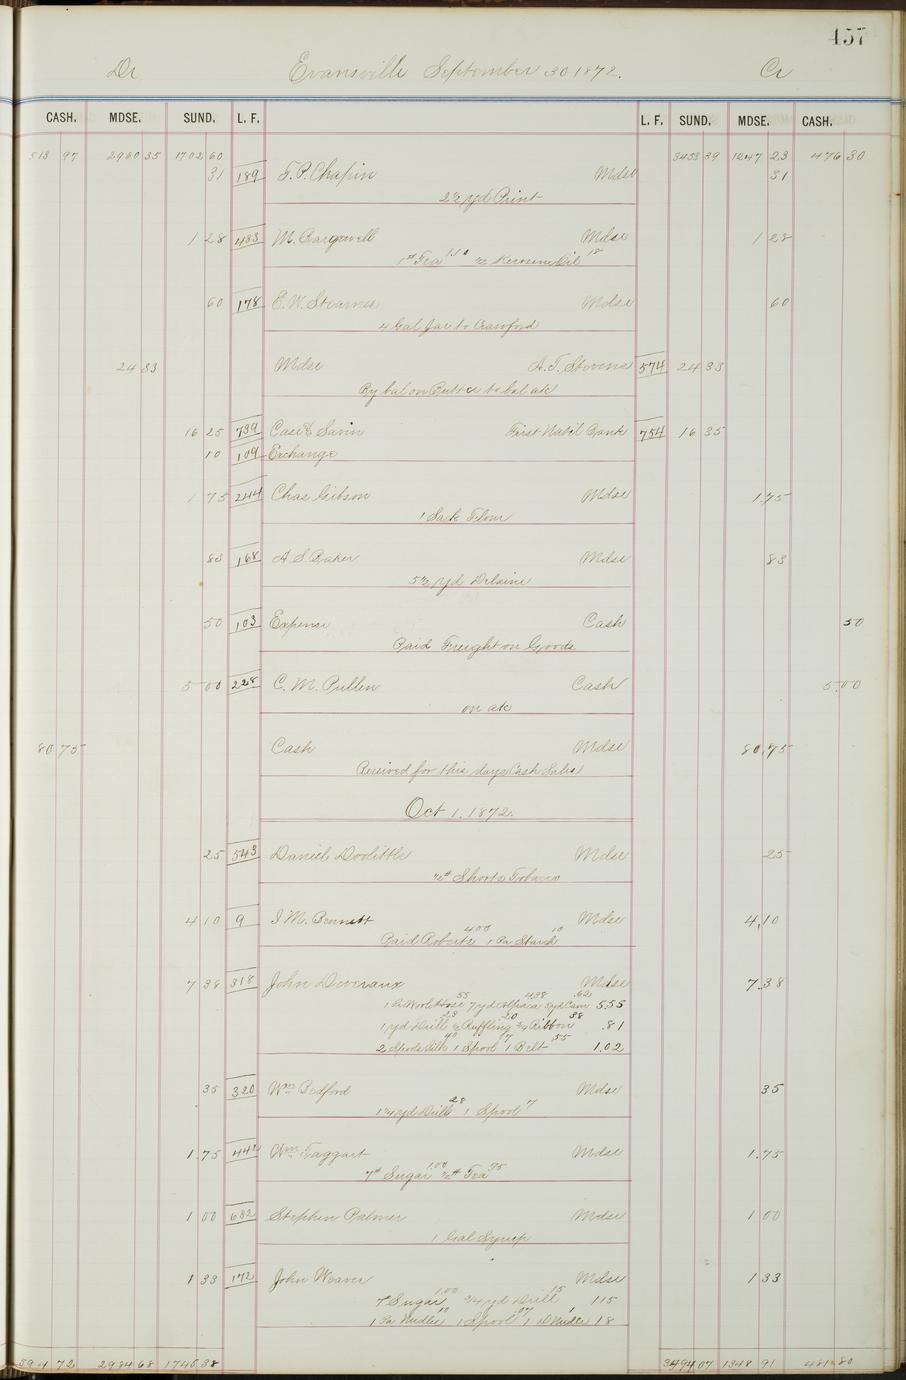 457
Dr Evansville September 30 1872. Cr
CASH. MDSE. SUND. L. F. L. F. SUND. MDSE. CASH.
513 97 2960 35 1702 60 3453 39 1247 23 476 30
31 189 F. P. Chapin Mdse 31
2½ yd Print
1 28 433 M. Mdse 1 28
1# Tea 1.10 ½ Kerosene Oil 18
60 178 E. W. Stearnes Mdse 60
4 Gal Jar to Crawford
24 33 Mdse A. T. Stevens 574 24 33
By bal on Butter to bal a/c
16 25 739 Case & Savin First Nat'l Bank 754 16 35
10 109 Exchange
1 75 244 Chas Gibson Mdse 1.75
1 Sack Flour
83 168 A S Baker Mdse 83
5½ yd Delaine
50 103 Expense Cash 50
Paid Freight on Goods
5 00 228 C. M. Pullen Cash 5.00
on a/c
80 75 Cash Mdse 80,75
Received for this days Cash Sales
Oct 1, 1872.
25 543 Daniel Doolittle Mdse 25
½# Shorts Tobacco
4 10 9 I M. Bennett Mdse 4,10
Paid Roberts 4.00 1 Pa Starch 10
7 38 318 John Deveraux Mdse 7.38
1 Pr Wool Hose 55 7 yd Alpaca 4.38 5 yd Cam .62 5.55
1 yd Drill 23 ½ Ruffling 20 ¾ Ribbon 38 .81
2 Spools Silk 40 1 Spool 7 1 Belt 55 1.02
35 320 Wm Bedford Mdse 35
1¾ yd Drill 28 1 Spool 7
1.75 442 Wm Taggart Mdse 1.75
7# Sugar 1.00 ½# Tea 75
1 00 682 Stephen Palmer Mdse 1 00
1 Gal Syrup
1 33 172 John Weaver Mdse 1 33
7# Sugar 1.00 ¾ yd Drill 15 115
1 Pa Needles 10 1 Spool 07 1 D Needle 1 18
594 72 2984 68 1745 38 3494 07 1348 91 481 80